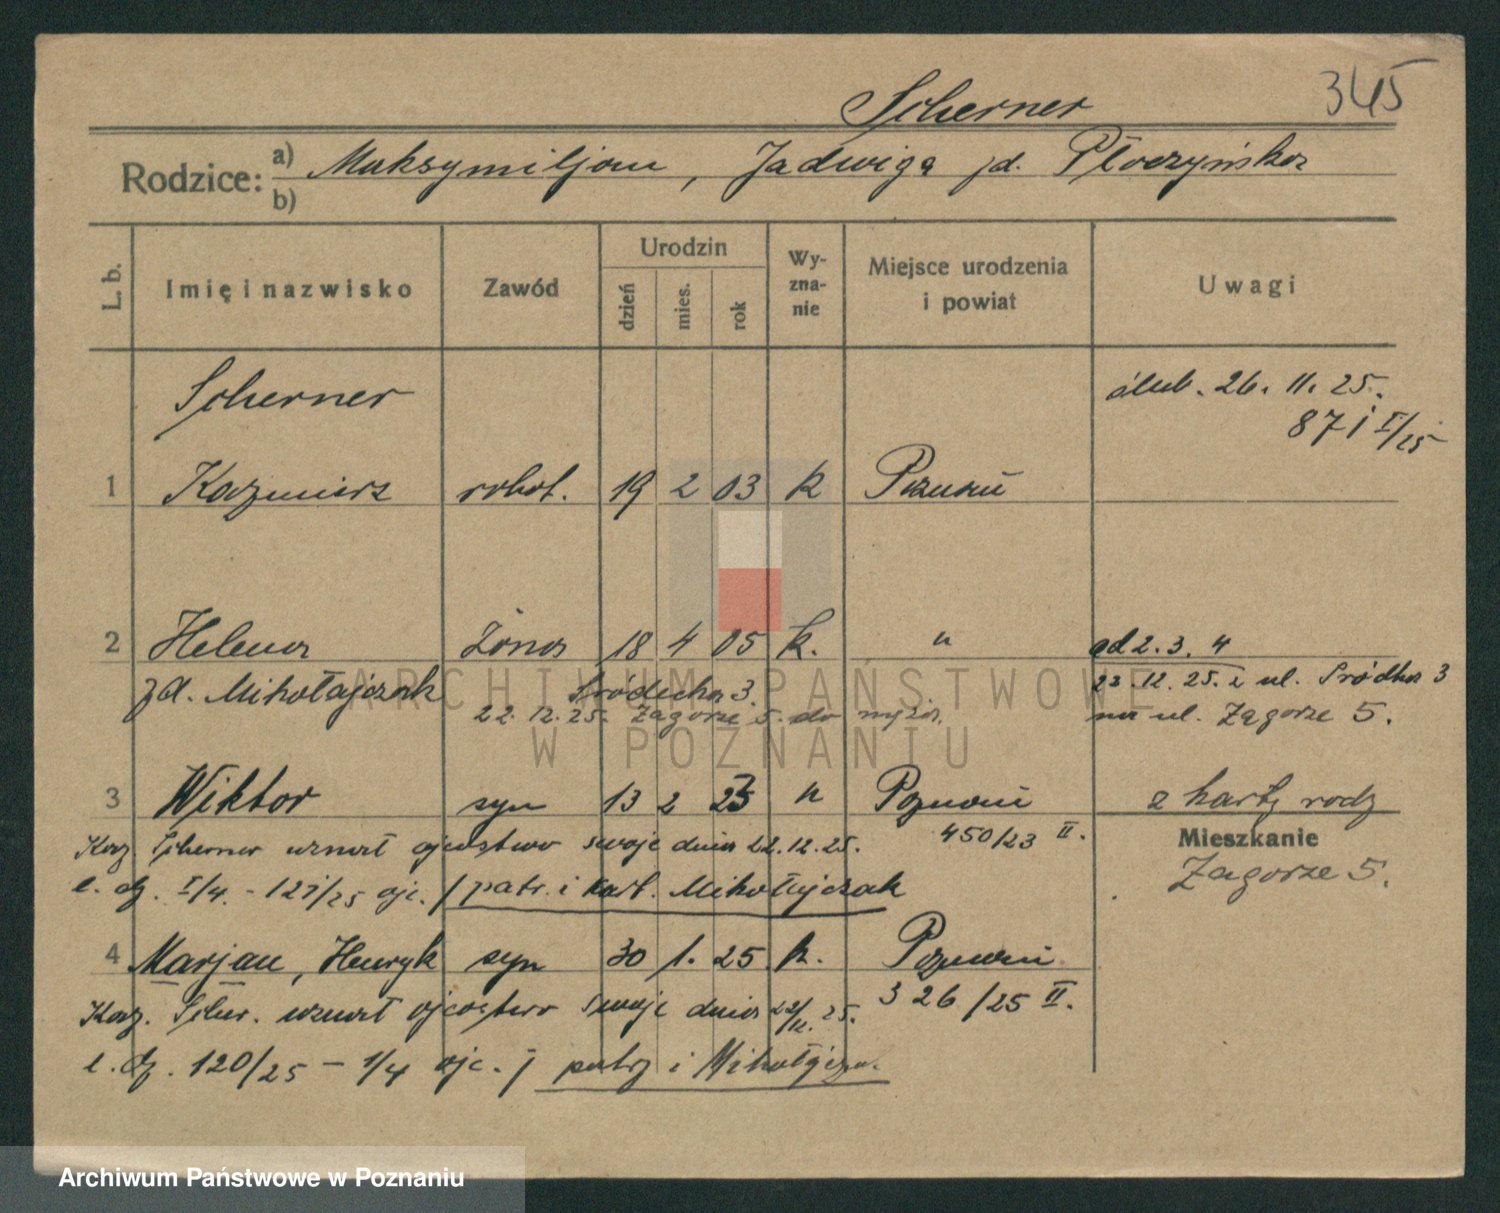 345
Scherner
Rodzice: a) Maksymiljan, Jadwiga zd. Płoczyńska
b)
L. b. Imię i nazwisko Zawód Urodzin dzień mies. rok Wy-zna-nie Miejsce urodzenia i powiat Uwagi
Scherner ślub. 26. 11. 25.
871 I/25
1 Kazimierz robot. 19 2 03 k Poznań
2 Helena żona 18 4 05 k. " ad 2. 3. 4
zd. Mikołajczak Śródecka 3. 22.12.25. z ul. Śródka 3
22.12.25. Zagorze 5. do męża. na ul. Zagorze 5.
3 Wiktor syn 13 2 23 " Poznań z karty rodz
450/23 II.
Kaz. Scherner uznał ojcostwo swoje dnia 22.12.25.
Mieszkanie
Zagorze 5.
l. dz. I/4. - 121/25 ojc. / patrz i kart. Mikołajczak
4 Marjan, Henryk syn 30 1. 25 k. Poznań
326/25 II.
Kaz. Scher. uznał ojcostwo swoje dnia 22/12. 25.
l. dz. 120/25 - 1/4 ojc. / patrz i Mikołajcza.
ARCHIWUM PAŃSTWOWE
W POZNANIU
Archiwum Państwowe w Poznaniu